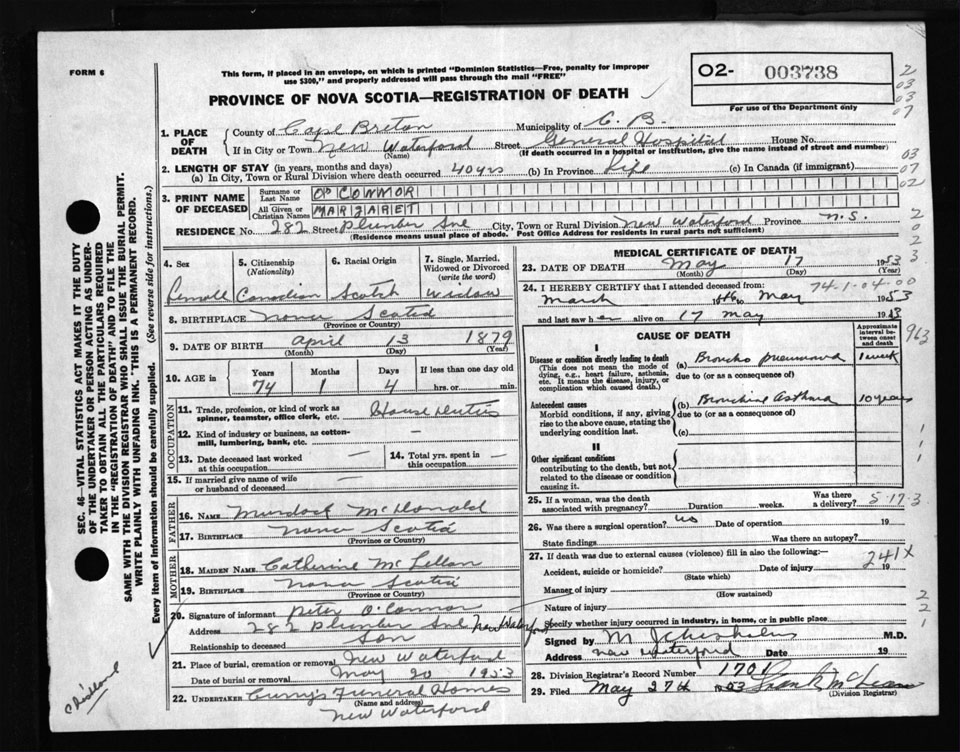 FORM 6
This form, if placed in an envelope, on which is printed "Dominion Statistics—Free, penalty for improper
use $300," and properly addressed will pass through the mail "FREE"
O2- 003738
For use of the Department only
PROVINCE OF NOVA SCOTIA—REGISTRATION OF DEATH
1. PLACE OF DEATH { County of Cape Breton Municipality of C. B.
If in City or Town New Waterford (Name) Street General Hospital House No.
(If death occurred in a hospital or institution, give the name instead of street and number)
2. LENGTH OF STAY (in years, months and days)
(a) In City, Town or Rural Division where death occurred 40 yrs (b) In Province Life (c) In Canada (if immigrant)
3. PRINT NAME OF DECEASED { Surname or Last Name O' CONNOR
All Given or Christian Names MARGARET
RESIDENCE No. 282 Street Plumber Ave City, Town or Rural Division New Waterford Province N.S.
(Residence means usual place of abode. Post Office Address for residents in rural parts not sufficient)
4. Sex Female
5. Citizenship (Nationality) Canadian
6. Racial Origin Scotch
7. Single, Married, Widowed or Divorced (write the word) Widow
8. BIRTHPLACE Nova Scotia
(Province or Country)
9. DATE OF BIRTH April 13 1879
(Month) (Day) (Year)
10. AGE in { Years 74 Months 1 Days 4 If less than one day old hrs. or min.
OCCUPATION
11. Trade, profession, or kind of work as spinner, teamster, office clerk, etc. House duties
12. Kind of industry or business, as cotton-mill, lumbering, bank, etc. —
13. Date deceased last worked at this occupation —
14. Total yrs. spent in this occupation —
15. If married give name of wife or husband of deceased —
FATHER
16. NAME Murdock McDonald
17. BIRTHPLACE Nova Scotia
(Province or Country)
MOTHER
18. MAIDEN NAME Catherine McLellan
19. BIRTHPLACE Nova Scotia
(Province or Country)
20. Signature of informant Peter O'Connor
Address 282 Plumber Ave New Waterford
Relationship to deceased Son
21. Place of burial, cremation or removal New Waterford
Date of burial, cremation or removal May 20 1953
22. UNDERTAKER Curry's Funeral Homes
(Name and address)
New Waterford
MEDICAL CERTIFICATE OF DEATH
23. DATE OF DEATH May 17 1953
(Month) (Day)
74-1-04-00
24. I HEREBY CERTIFY that I attended deceased from:
March 16th to May 1953
and last saw her alive on 17 May 1953
CAUSE OF DEATH
Approximate interval between onset and death
963
I
Disease or condition directly leading to death
(This does not mean the mode of dying, e.g., heart failure, asthenia, etc. It means the disease, injury, or complication which caused death.)
(a) Broncho pneumonia 1 week
due to (or as a consequence of)
Antecedent causes
Morbid conditions, if any, giving rise to the above cause, stating the underlying condition last.
(b) Bronchial Asthma 10 years
due to (or as a consequence of)
(c)
II
Other significant conditions
contributing to the death, but not related to the disease or condition causing it.
25. If a woman, was the death associated with pregnancy? Duration weeks. Was there a delivery?
5-17-3
26. Was there a surgical operation? no Date of operation 19
State findings Was there an autopsy?
27. If death was due to external causes (violence) fill in also the following:—
241X
Accident, suicide or homicide? Date of injury 19
(State which)
Manner of injury
(How sustained)
Nature of injury
Specify whether injury occurred in industry, in home, or in public place
Signed by M. M.D.
Address New Waterford Date 19
28. Division Registrar's Record Number 1701
29. Filed May 27th 1953 Frank McLean
(Division Registrar)
SEC. 46—VITAL STATISTICS ACT MAKES IT THE DUTY
OF THE UNDERTAKER OR PERSON ACTING AS UNDER-
TAKER TO OBTAIN ALL THE PARTICULARS REQUIRED
IN THE "REGISTRATION OF DEATH" AND TO FILE THE
SAME WITH THE DIVISION REGISTRAR WHO SHALL ISSUE THE BURIAL PERMIT.
WRITE PLAINLY WITH UNFADING INK. THIS IS A PERMANENT RECORD.
Every item of Information should be carefully supplied. (See reverse side for instructions.)